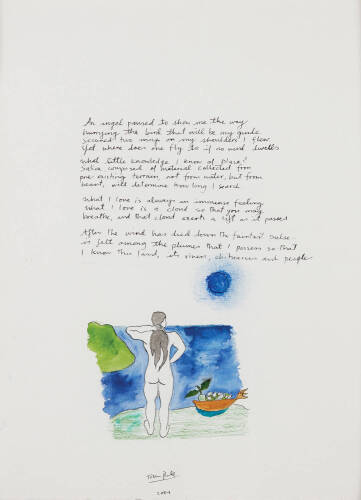 An angel paused to show me the way
the bird that will be my guide
secured two wings on my shoulders I flew
Yet where does one fly to if no word dwells
What little knowledge I know of place
composed of material collected from
terrain, not from water, but from
heart, will determine how long I search
What I love is always an immense feeling
What I love is a cloud so that you may
breathe, and that cloud exerts a lift as it passes
After the wind has died down the faintest pulse
is felt among the plumes that I possess so that
I know this land, its rivers, and people
2001